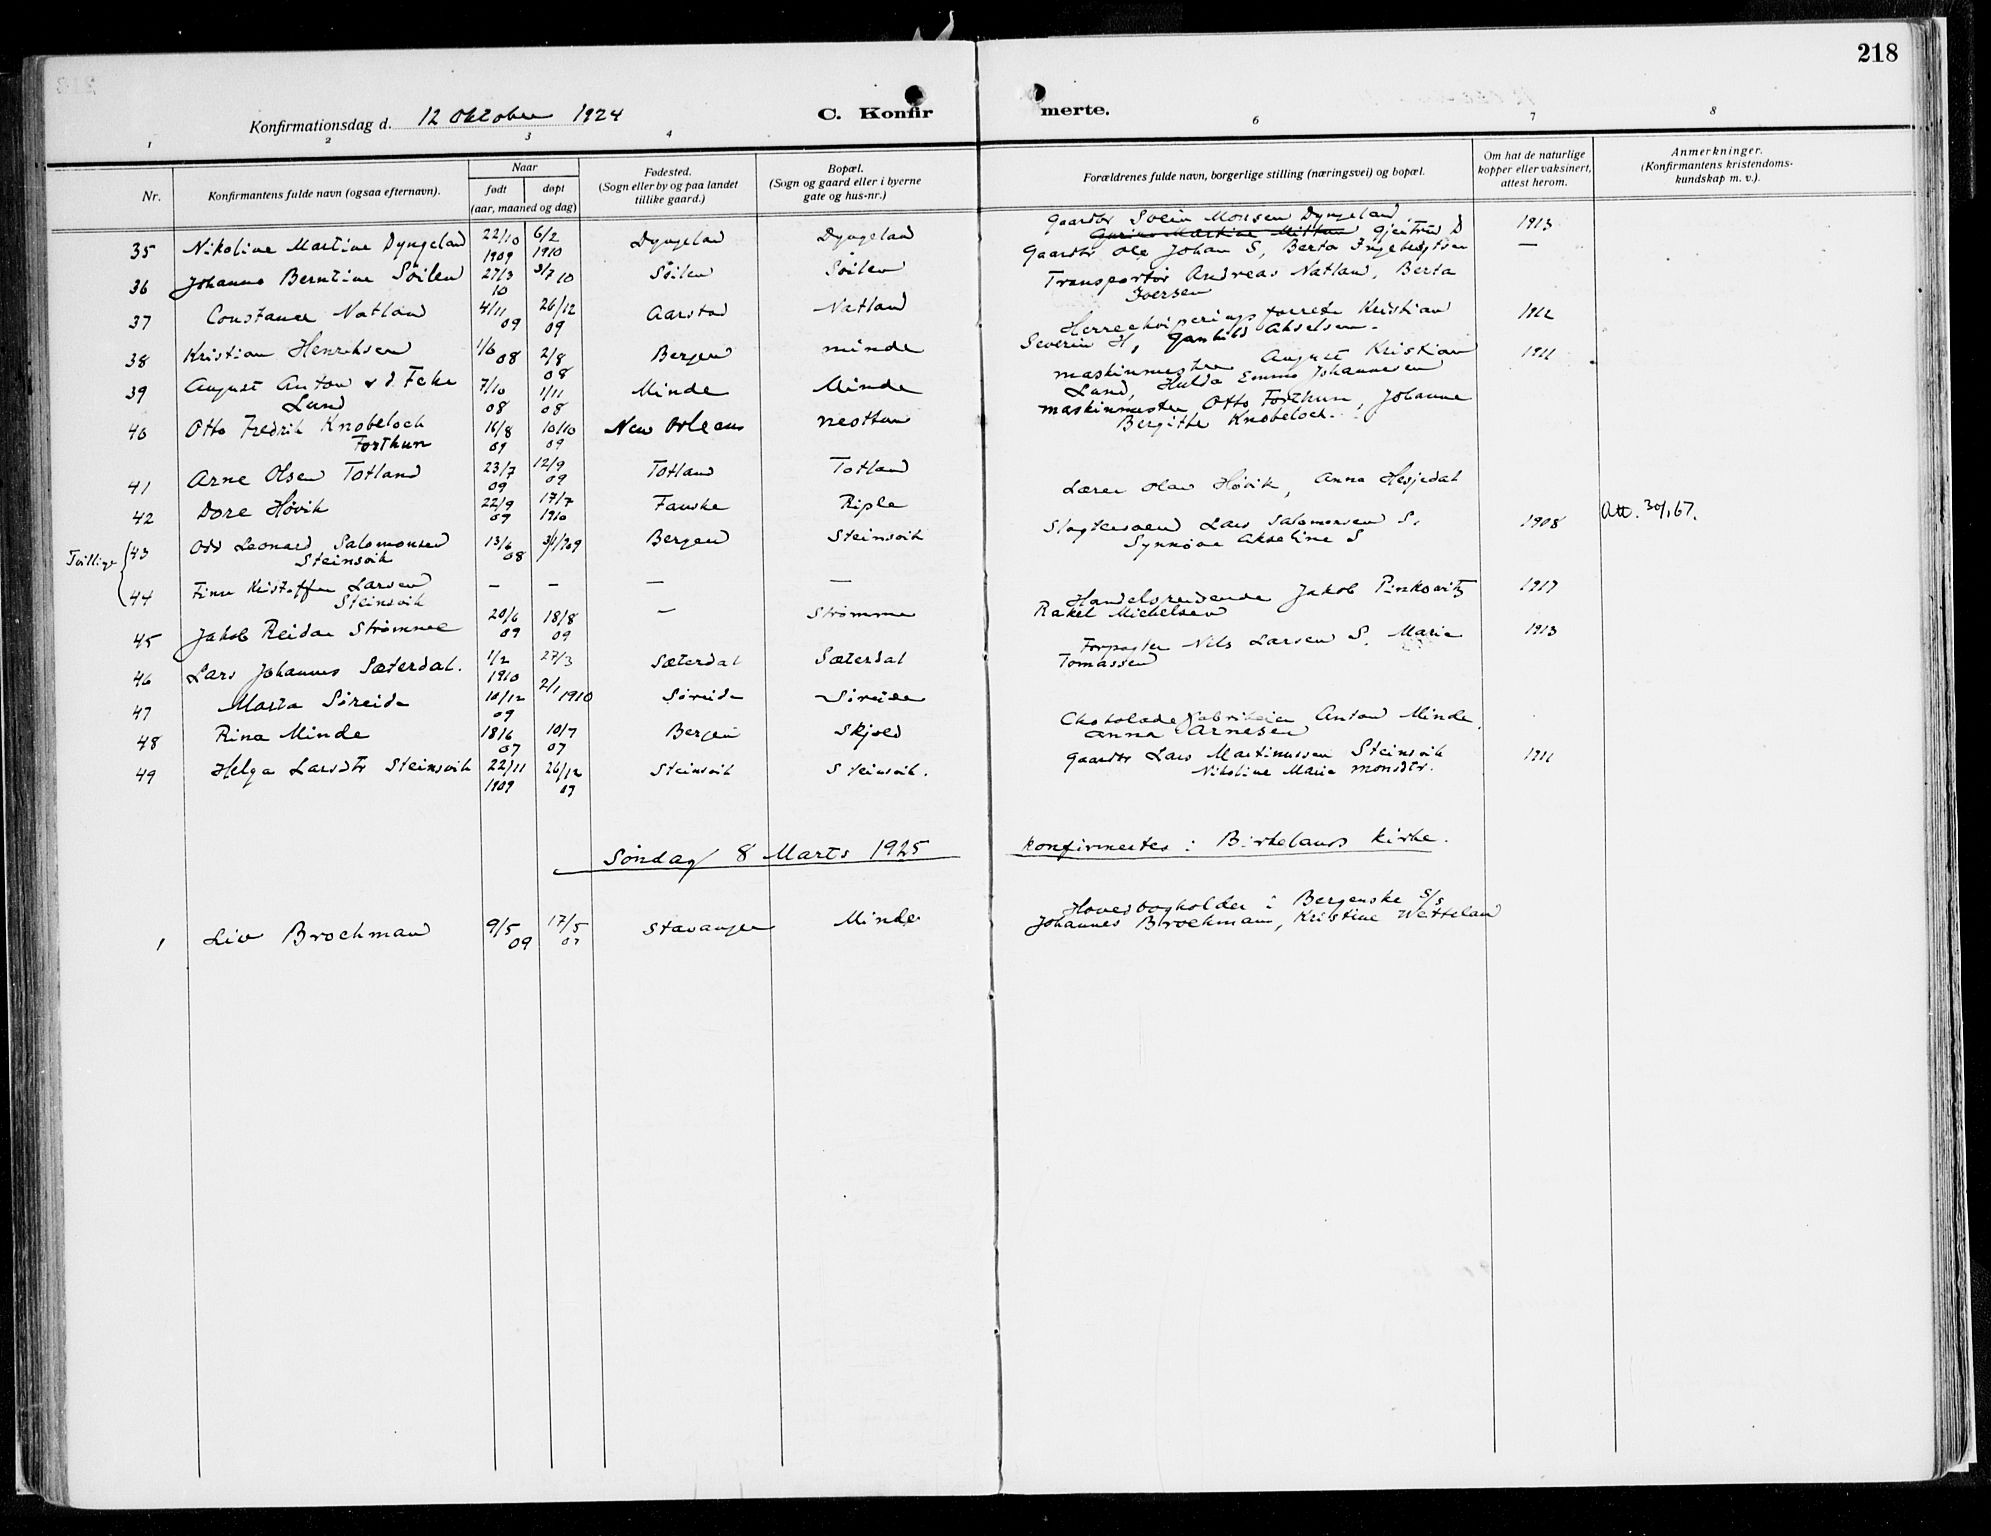 218
Konfirmationsdag d. 12 Oktober 1924
C. Konfir
merte.
1 2 3 4 6 7 8
Nr.
Konfirmantens fulde navn (ogsaa efternavn).
Naar
født døpt
(aar, maaned og dag)
Fødested.
(Sogn eller by og paa landet
tillike gaard.)
Bopæl.
(Sogn og gaard eller i byerne
gate og hus-nr.)
Forældrenes fulde navn, borgerlige stilling (næringsvei) og bopæl.
Om hat de naturlige
kopper eller vaksinert,
attest herom.
Anmerkninger.
(Konfirmantens kristendoms-
kundskap m. v.).
35 Nikoline Martine Dyngeland 22/10 1909 6/2 1910 Dyngeland Dyngeland
Gaardbr Svein Monsen Dyngeland 1913
Gjertrud D
36 Johanne Berntine Söilen 27/3 10 3/7 10 Söilen Söilen
Gaardbr Ole Johan S, Berta Ingebrigtsen —
37 Constance Natland 4/11 09 26/12 09 Aarstad Natland
Transportör Andreas Natland, Berta
Iversen
38 Kristian Henriksen 1/6 08 2/8 08 Bergen Minde
Herreekviperingsforretn Kristian 1922
Severin H, Gunhild Akselsen.
39 August Anton v. d. Fehr
Lund 7/10 08 1/11 08 Minde Minde
Maskinmester August Kristian 1911
Lund, Hulda Emma Johannesen
40 Otto Fredrik Knobeloch
Forthun 16/8 09 10/10 09 New Orleans Nesttun
Maskinmester Otto Forthun, Johanne
Bergitte Knobeloch.
41 Arne Olsen Totland 23/7 09 12/9 09 Totland Totland
42 Dore Hövik 22/9 09 17/7 1910 Fauske Riple
Lærer Olav Hövik, Anna Hesjedal
Tvillinge
43 Odd Leonard Salomonsen
Steinsvik 13/6 08 Bergen Steinsvik
Slagtersvend Lars Salomonsen S. 1908 Att. 30/1 67.
Synnöve Akseline S
44 Finn Kristoffer Larsen
Steinsvik — — — —
45 Jakob Reidar Strömme 20/6 09 18/8 09 — Strömme
Handelsreisende Jakob Pinkowitz 1917
Rakel Mickelsen
46 Lars Johannes Sæterdal. 1/2 1910 27/3 Sæterdal Sæterdal
Forpagter Nils Larsen S. Marie 1913
Tomassen
47 Marta Söreide 10/12 09 2/1 1910 Söreide Söreide
48 Rina Minde 18/6 07 10/7 07 Bergen Skjold
Chokoladefabrikeier Anton Minde
Anna Arnesen
49 Helga Larsdtr Steinsvik 22/11 1909 26/12 09 Steinsvik Steinsvik.
Gaardbr Lars Martinussen Steinsvik 1911
Nikoline Marie Monsdtr.
Söndag 8 Marts 1925
konfirmertes i Birkelands kirke.
1 Liv Brochman 9/5 09 17/5 09 Stavanger Minde
Hovedbogholder i Bergenske S/S
Johannes Brochmann, Kristine Wetteland